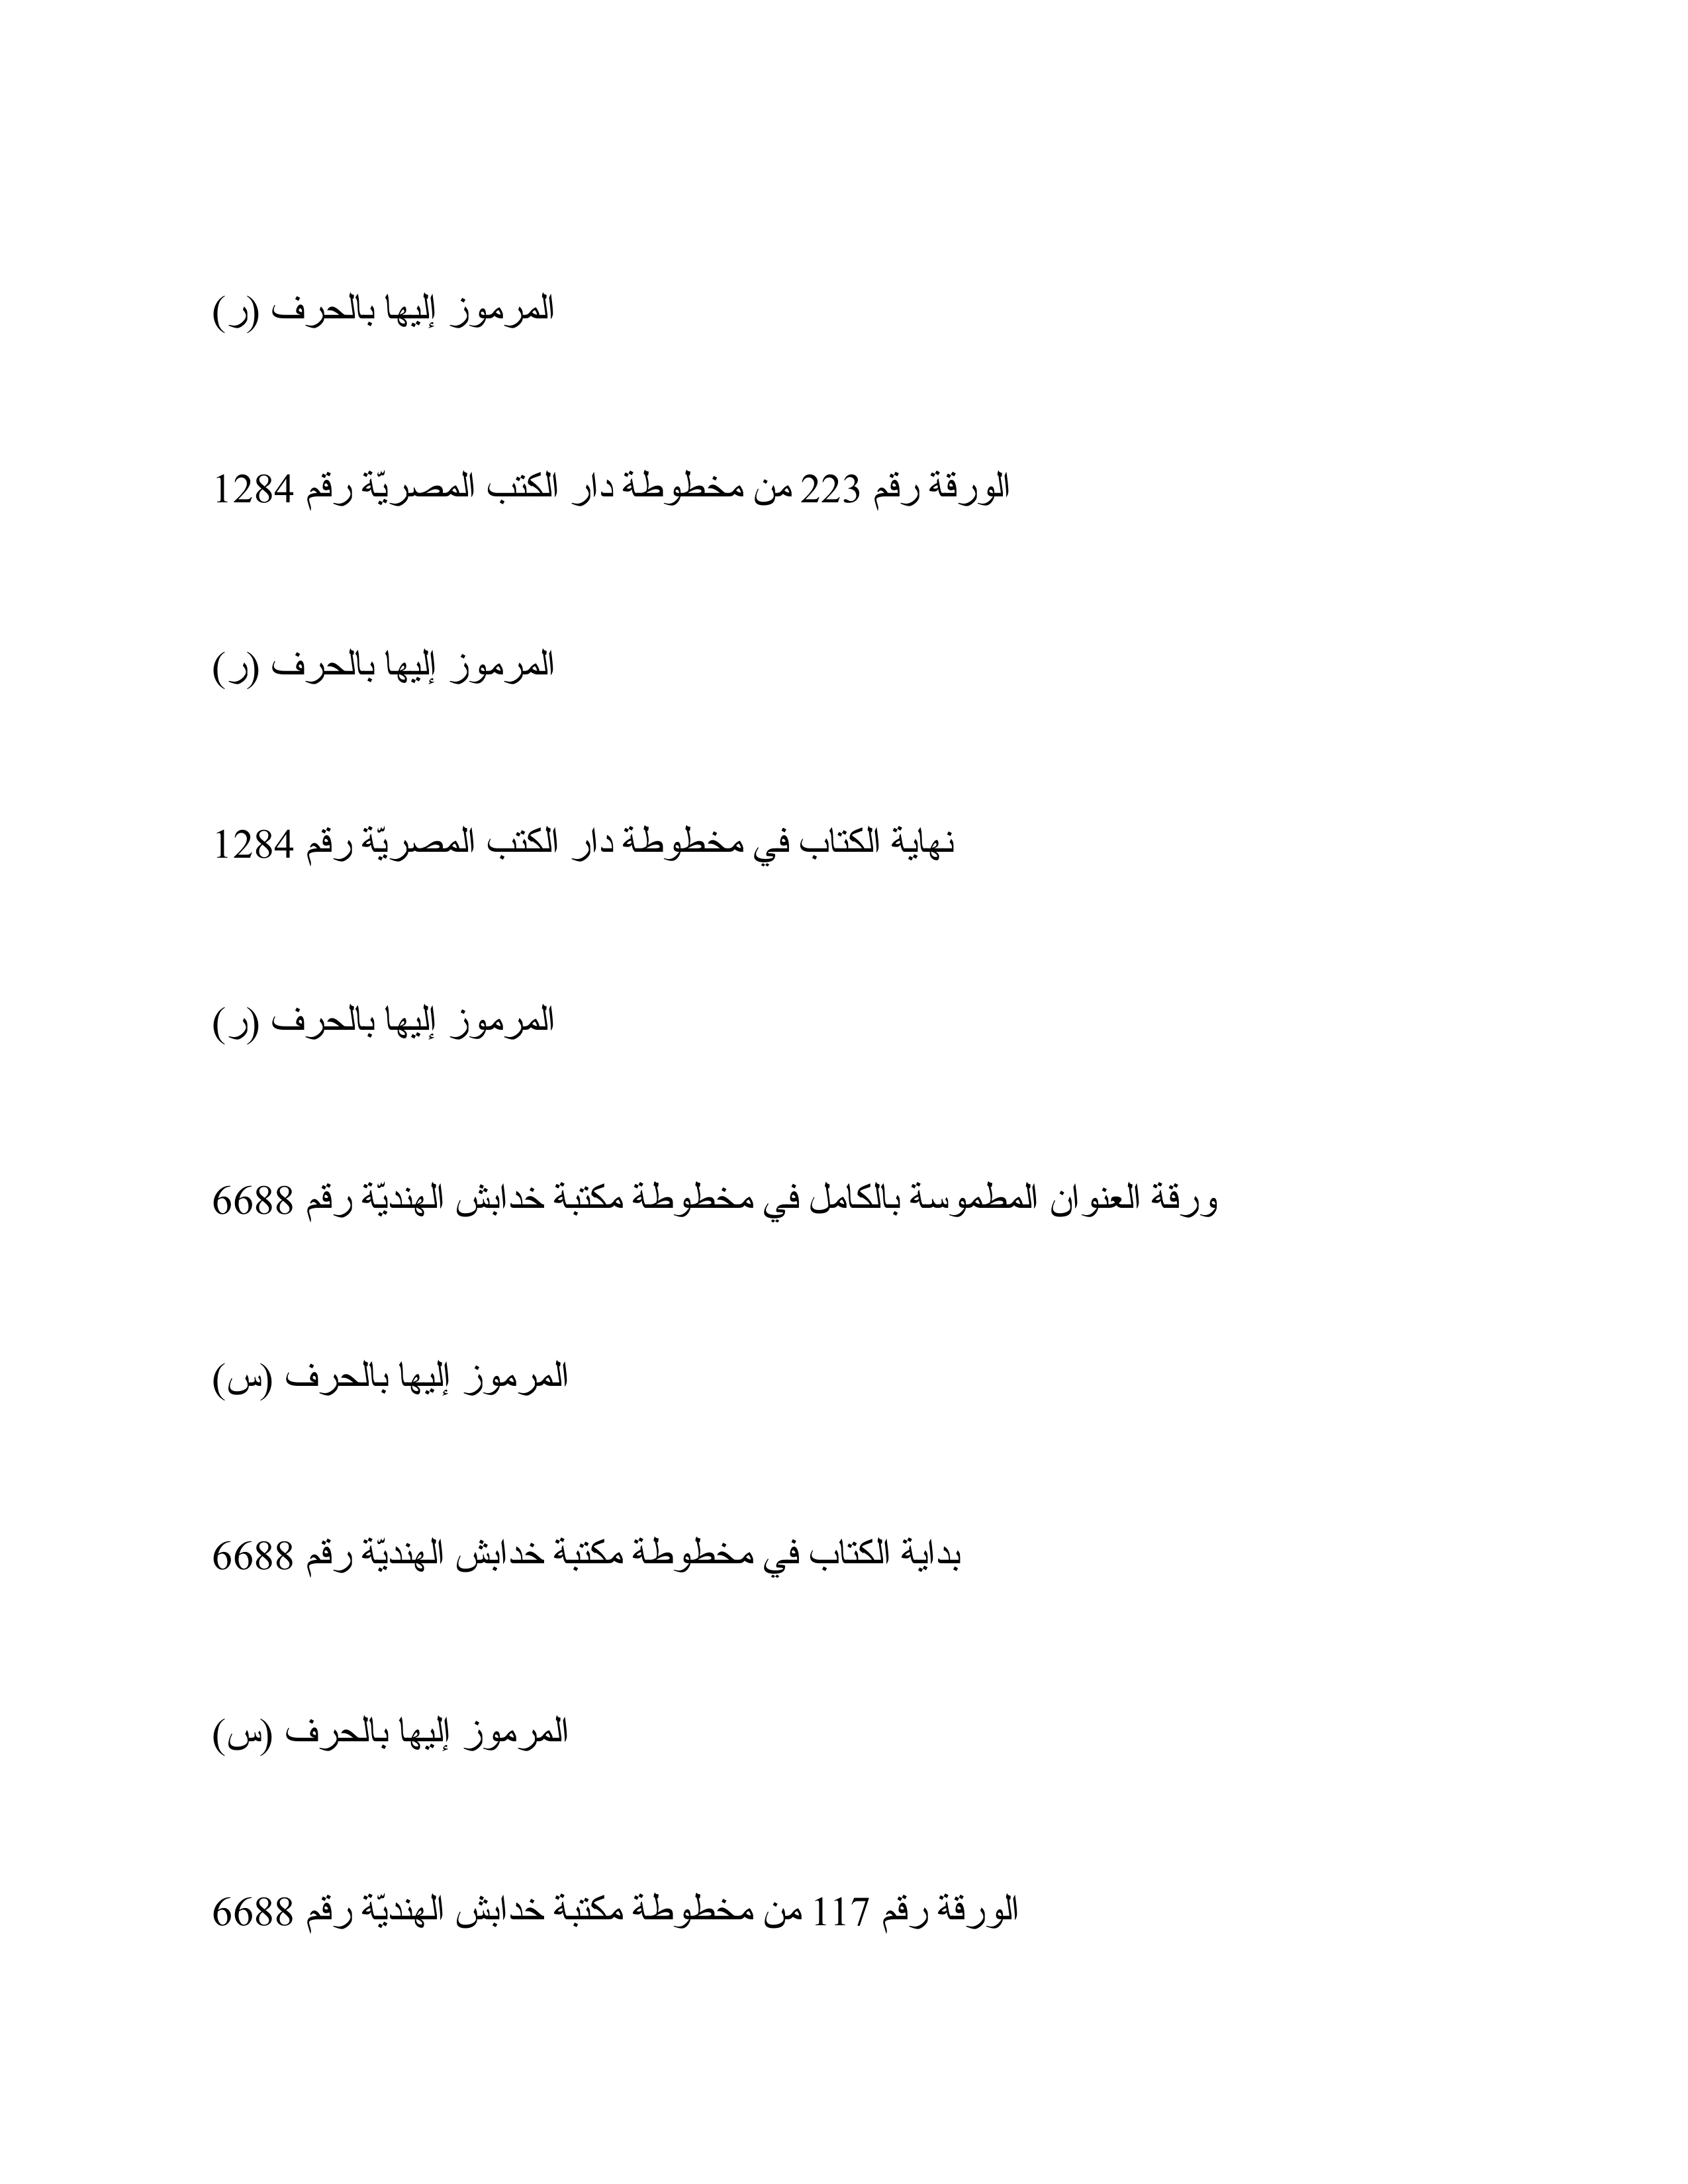 المرموز إليها بالحرف (ر)
الورقة رقم 223 من مخطوطة دار الكتب المصريّة رقم 1284
المرموز إليها بالحرف (ر)
نهاية الكتاب في مخطوطة دار الكتب المصريّة رقم 1284
المرموز إليها بالحرف (ر)
ورقة العنوان المطموسة بالكامل في مخطوطة مكتبة خدابش الهنديّة رقم 6688
المرموز إليها بالحرف (س)
بداية الكتاب في مخطوطة مكتبة خدابش الهنديّة رقم 6688
المرموز إليها بالحرف (س)
الورقة رقم 117 من مخطوطة مكتبة خدابش الهنديّة رقم 6688